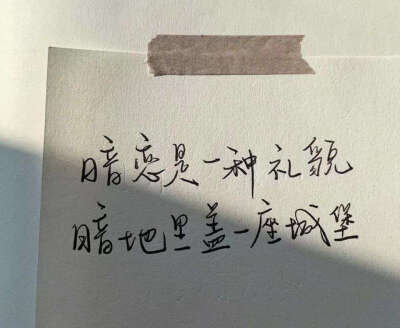 暗恋是一种礼貌
暗地里盖一座城堡